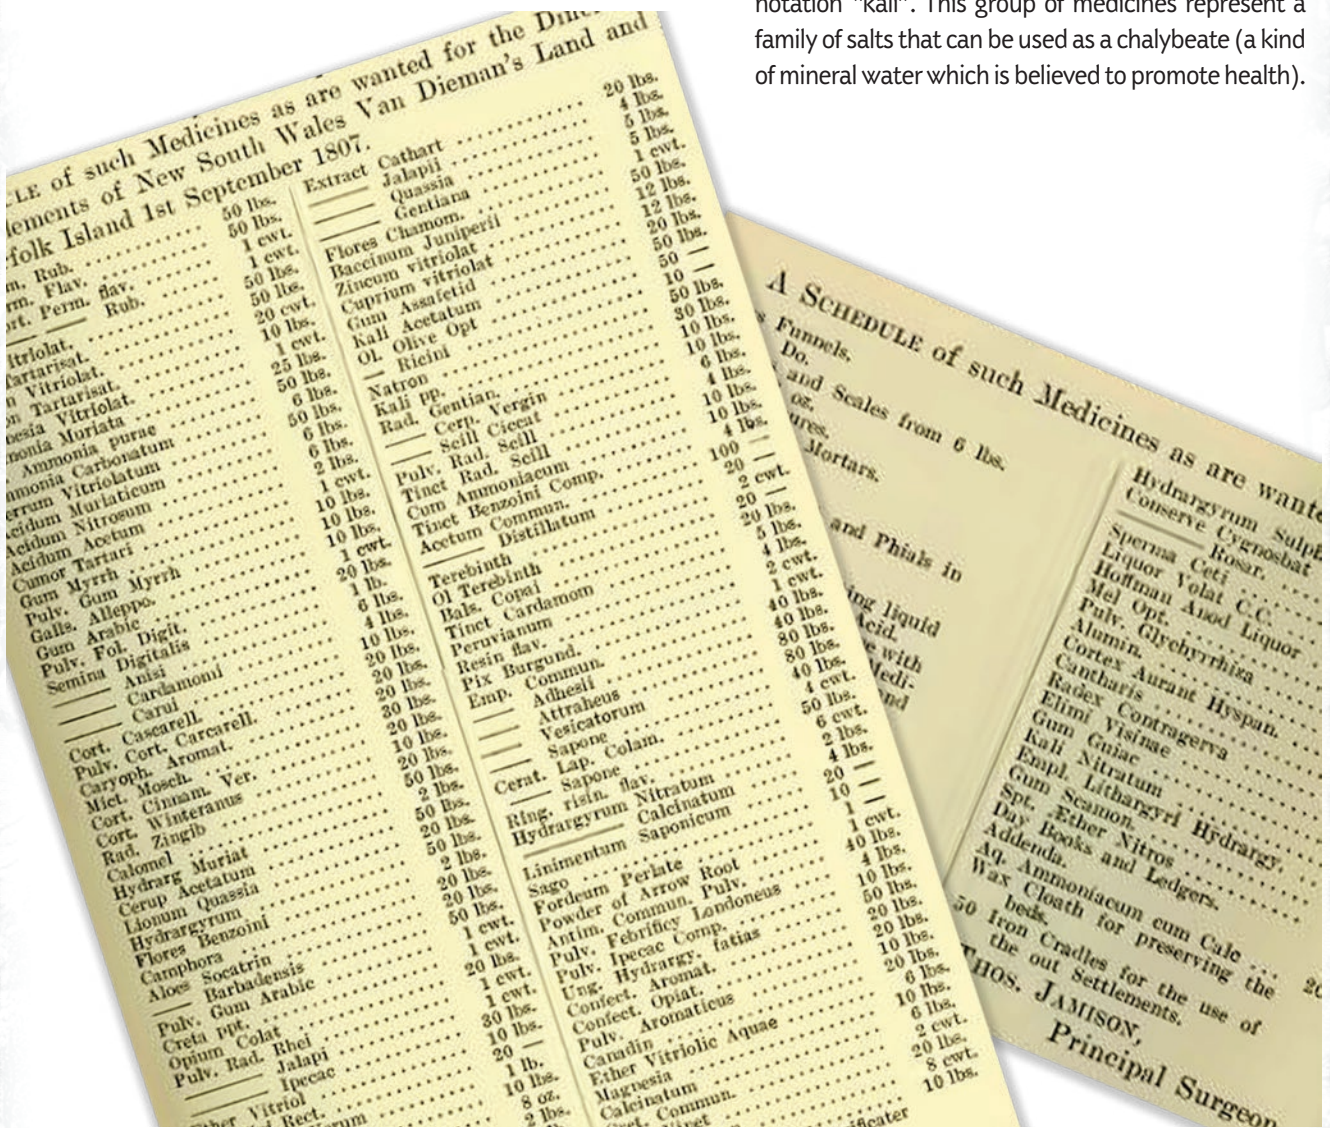 notation "kali". This group of medicines represent a
family of salts that can be used as a chalybeate (a kind
of mineral water which is believed to promote health).
of such Medicines as are wanted for the
of New South Wales Van Dieman's Land and
folk Island 1st September 1807.
Rub. 50 lbs.
Flav. 50 lbs.
Perm. flav. 1 cwt.
Rub. 1 cwt.
itriolat. 50 lbs.
Tartarisat. 50 lbs.
Vitriolat. 20 cwt.
Tartarisat. 10 lbs.
Vitriolat. 1 cwt.
Muriata 25 lbs.
Ammonia purae 50 lbs.
Carbonatum 6 lbs.
Vitriolatum 50 lbs.
Acidum Muriaticum 6 lbs.
Acidum Nitrosum 6 lbs.
Acidum Acetum 2 lbs.
Cumor Tartari 1 cwt.
Gum Myrrh 10 lbs.
Pulv. Gum Myrrh 10 lbs.
Galls. Alleppo. 10 lbs.
Gum Arabic 1 cwt.
Pulv. Fol. Digit. 20 lbs.
Semina Digitalis 1 lb.
—— Anisi 6 lbs.
—— Cardamomi 4 lbs.
—— Carui 10 lbs.
Cort. Cascarell. 20 lbs.
Pulv. Cort. Carcarell. 20 lbs.
Caryoph. Aromat. 20 lbs.
Mict. Mosch. 30 lbs.
Cort. Cinnam. Ver. 20 lbs.
Cort. Winteranus 10 lbs.
Rad. Zingib 20 lbs.
Calomel 50 lbs.
Hydrarg Muriat 2 lbs.
Cerup Acetatum 50 lbs.
Lionum Quassia 20 lbs.
Hydrargyrum 50 lbs.
Flores Benzoini 2 lbs.
Camphora 20 lbs.
Aloes Socatrin 20 lbs.
—— Barbadensis 50 lbs.
Pulv. Gum Arabic 1 cwt.
Creta ppt. 1 cwt.
Opium Colat 20 lbs.
Pulv. Rad. Rhei 1 cwt.
—— Jalapi 1 cwt.
—— Ipecac 30 lbs.
Vitriol 10 lbs.
Rect. 20 —
1 lb.
10 lbs.
8 oz.
2 lbs.
Extract Cathart 20 lbs.
—— Jalapii 4 lbs.
—— Quassia 5 lbs.
—— Gentiana 5 lbs.
Flores Chamom. 1 cwt.
Baccinum Juniperii 50 lbs.
Zincum vitriolat 12 lbs.
Cuprium vitriolat 12 lbs.
Gum Assafetid 20 lbs.
Kali Acetatum 50 lbs.
Ol. Olive Opt 50 —
— Ricini 10 —
Natron 50 lbs.
Kali pp. 30 lbs.
Rad. Gentian. 10 lbs.
—— Cerp. Vergin 10 lbs.
—— Scill Ciccat 6 lbs.
Pulv. Rad. Scill 4 lbs.
Tinct Rad. Scill 10 lbs.
Cum Ammoniacum 10 lbs.
Tinct Benzoini Comp. 4 lbs.
Acetum Commun. 100 —
—— Distillatum 20 —
Terebinth 2 cwt.
Ol Terebinth 20 —
Bals. Copai 20 lbs.
Tinct Cardamom 5 lbs.
Peruvianum 4 lbs.
Resin flav. 2 cwt.
Pix Burgund. 1 cwt.
Emp. Commun. 40 lbs.
—— Adhesii 80 lbs.
—— Attraheus 80 lbs.
—— Vesicatorum 40 lbs.
—— Sapone 4 cwt.
Cerat. Lap. Colam. 50 lbs.
—— Sapone 6 cwt.
Ring. risin. flav. 2 lbs.
Hydrargyrum Nitratum 4 lbs.
—— Calcinatum 20 —
Linimentum Saponicum 10 —
Sago 1 —
Fordeum Perlate 1 cwt.
Powder of Arrow Root 40 lbs.
Antim. Commun. Pulv. 4 lbs.
Pulv. Febrificy Londoneus 10 lbs.
Pulv. Ipecac Comp. 50 lbs.
Ung. Hydrargy. fatias 20 lbs.
Confect. Aromat. 20 lbs.
Confect. Opiat. 10 lbs.
Pulv. Aromaticus 20 lbs.
Canadin 6 lbs.
Ether Vitriolic Aquae 10 lbs.
Magnesia 6 lbs.
Calcinatum 2 cwt.
Commun. 20 lbs.
8 cwt.
ificater 10 lbs.
A SCHEDULE of such Medicines as are wante
Funnels.
Do.
and Scales from 6 lbs.
oz.
Mortars.
and Phials in
liquid
Acid.
with
Hydrargyrum Sulph
Conserve Cygnosbat
—— Rosar.
Sperma Ceti
Liquor Volat C.C.
Hoffman Anod Liquor
Mel Opt.
Pulv. Glychyrrhiza
Alumin.
Cortex Aurant Hyspan.
Cantharis
Radex Contragerva
Elimi Visinae
Gum Guiac
Kali Nitratum
Empl. Lithargyri Hydrargy.
Gum Scamon.
Spt. Ether Nitros
Day Books and Ledgers.
Addenda.
Aq. Ammoniacum cum Calc
Wax Cloath for preserving the
beds.
50 Iron Cradles for the use of
the out Settlements.
THOS. JAMISON,
Principal Surgeon